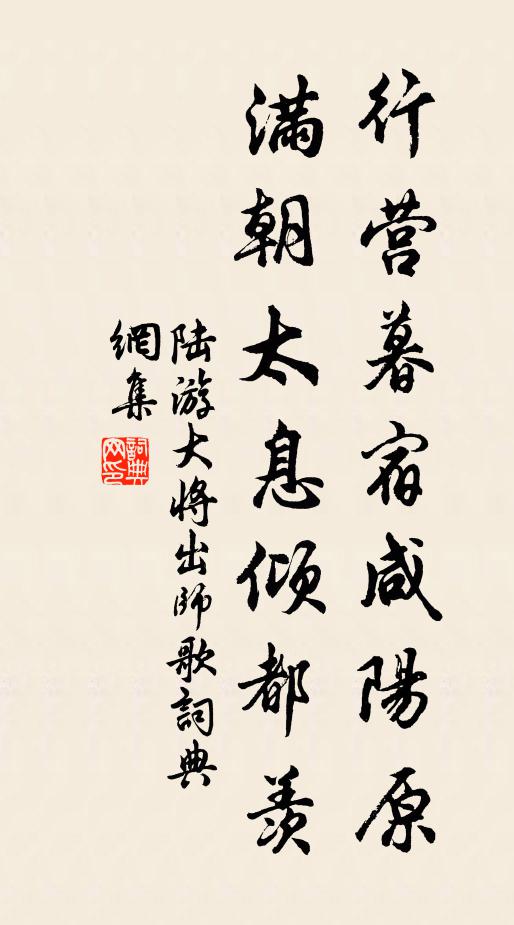 行营暮宿咸陽原
满朝太息倾都羡
陆游大将出师歌詞典
網集
詞典网印